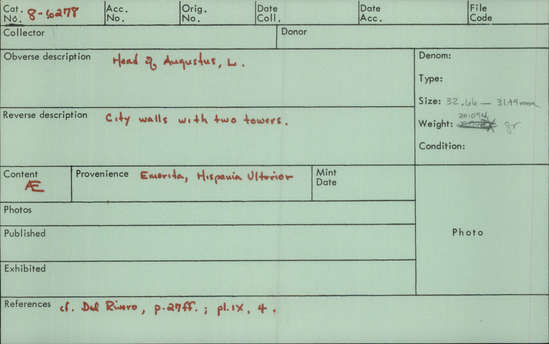 Cat. No. 8-50278 Acc. No. Orig. No. Date Coll. Date Acc. File Code
Collector Donor
Obverse description Head of Augustus, L.
Denom:
Type:
Size: 32.66 — 31.49 mm
Reverse description City walls with two towers.
Weight: 20.094 gr
Condition:
Content Æ Provenience Emerita, Hispania Ulterior Mint Date
Photos
Published
Photo
Exhibited
References cf. Del Rivero, p.27ff.; pl.IX, 4.